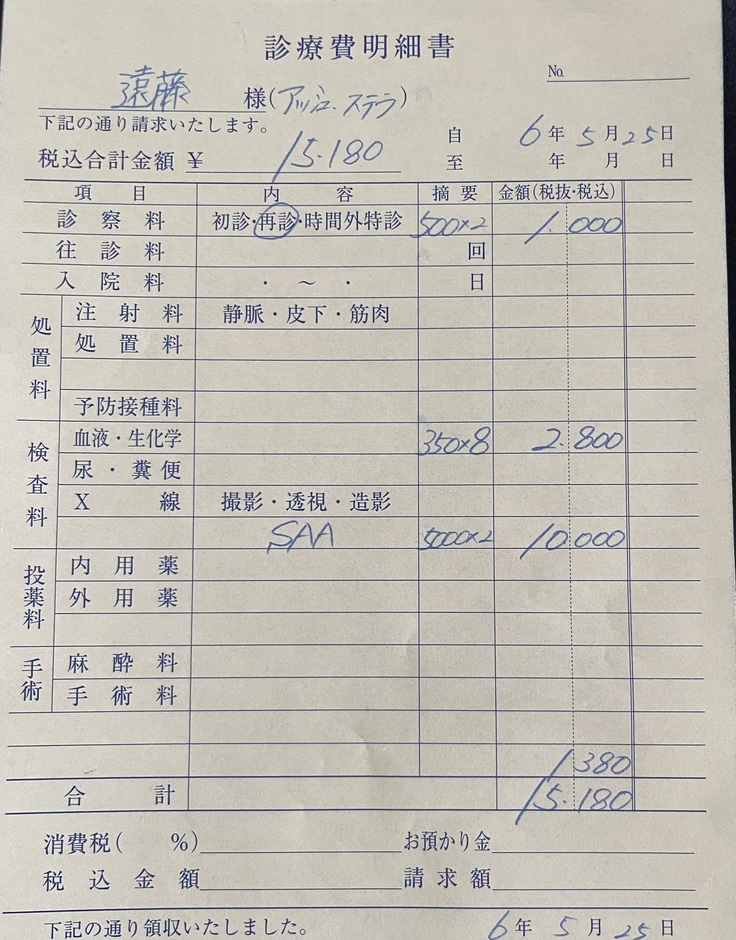 診療費明細書
No.
遠藤 様(アッシュ・ステラ)
下記の通り請求いたします。
自 6年 5月25日
税込合計金額 ¥ 15.180
至 年 月 日
項目 内容 摘要 金額(税抜・税込)
診察料 初診・再診・時間外特診 500×2 1.000
往診料 回
入院料 ・ ~ ・ 日
処置料
注射料 静脈・皮下・筋肉
処置料
予防接種料
検査料
血液・生化学 350×8 2.800
尿・糞便
X線 撮影・透視・造影
SAA 5000×2 10.000
投薬料
内用薬
外用薬
手術
麻酔料
手術料
1380
合計 15.180
消費税( %) お預かり金
税込金額 請求額
下記の通り領収いたしました。 6年 5月 25日